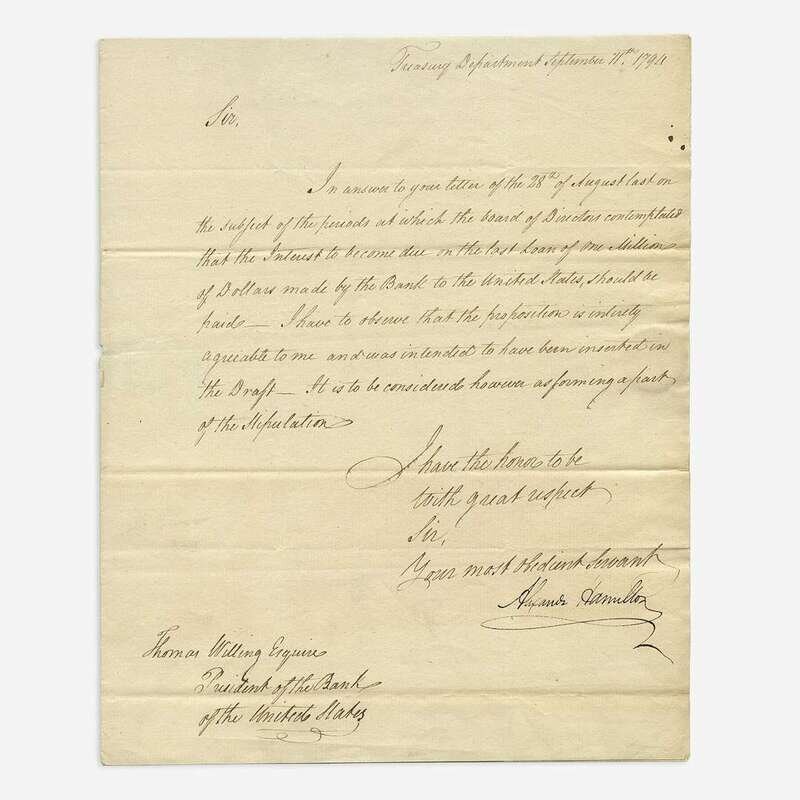 Treasury Department September 11th. 1794
Sir,
In answer to your letter of the 28th of August last on
the subject of the periods at which the board of Directors contemplated
that the Interest to become due on the last Loan of one Million
of Dollars made by the Bank to the United States, should be
paid — I have to observe that the proposition is intirely
agreable to me and was intended to have been inserted in
the Draft — It is to be considered however as forming a part
of the Stipulation
I have the honor to be
with great respect
Sir,
Your most obedient Servant
Alexander Hamilton
Thomas Willing Esquire
President of the Bank
of the United States